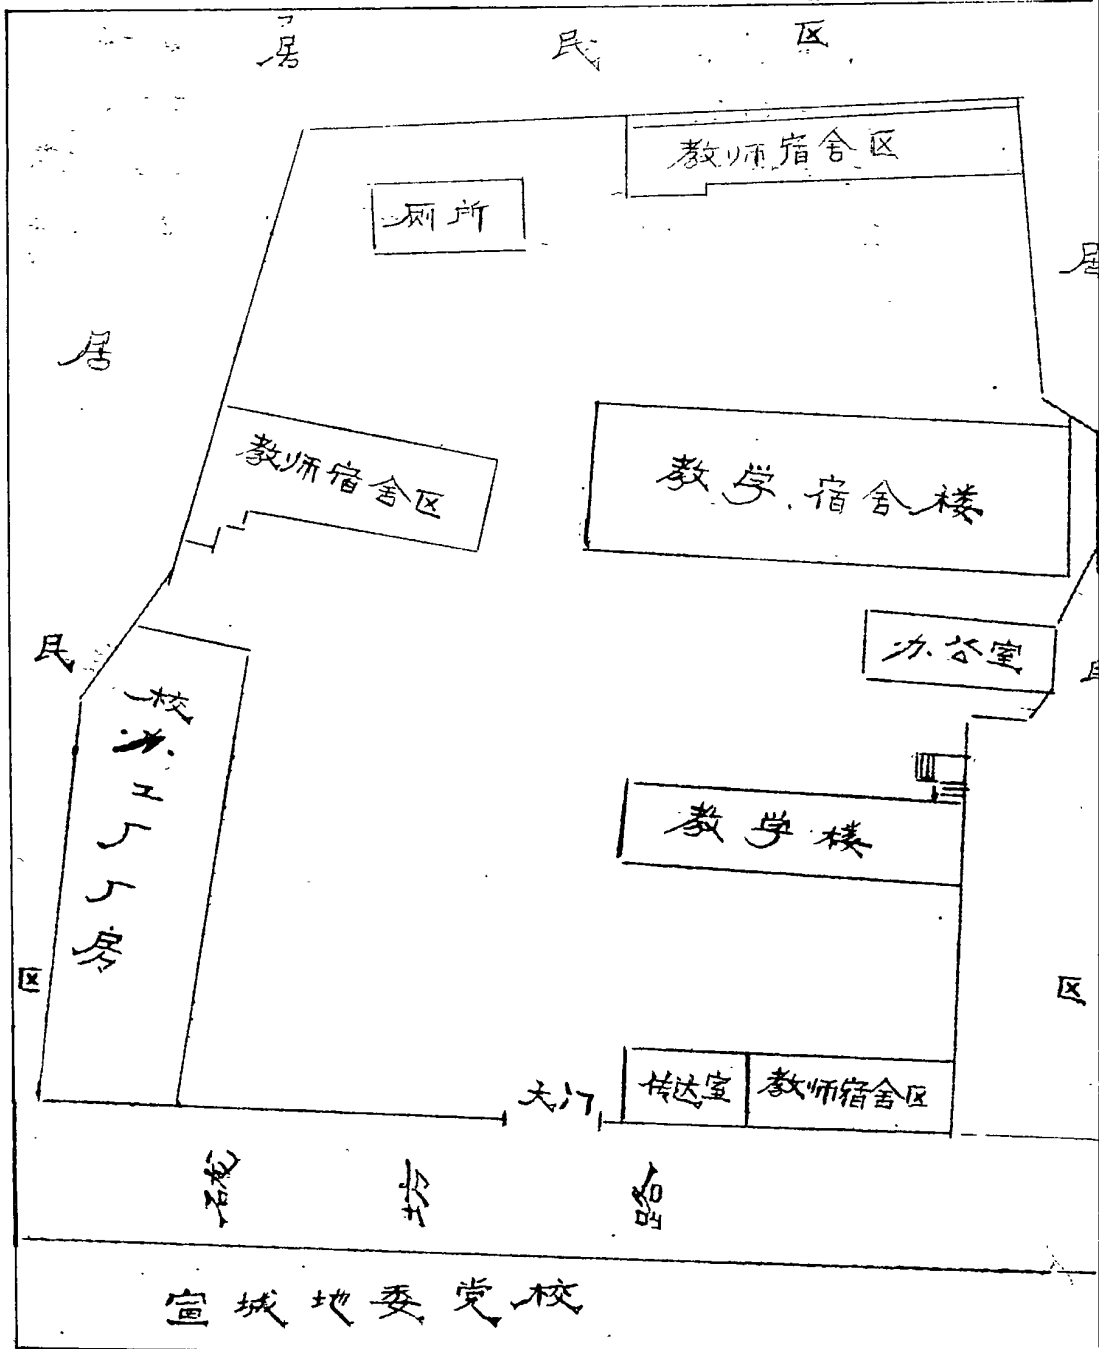 居民区
教师宿舍区
厕所
居民区
居民区
教师宿舍区
教学.宿舍楼
办公室
校办工厂厂房
教学楼
大门
传达室
教师宿舍区
坊路
宣城地委党校